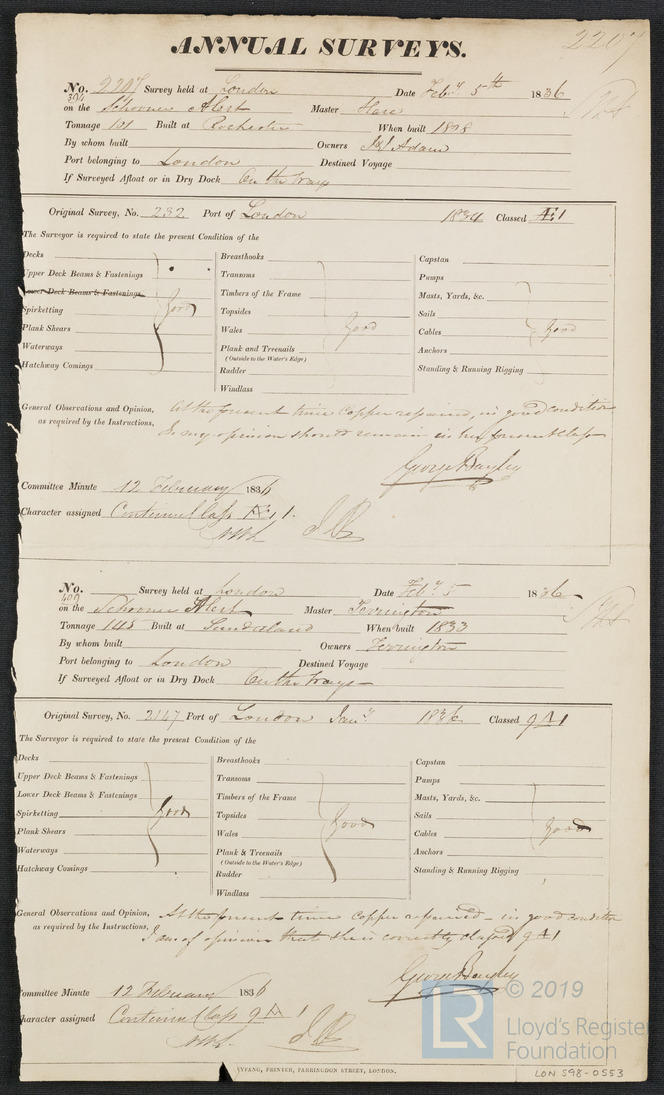 2207
ANNUAL SURVEYS.
No. 2207 Survey held at London Date Feby. 5th 1836
394
on the Schooner Alert Master Hare
Tonnage 101 Built at Rochester When built 1828
By whom built Owners J&J Adam
Port belonging to London Destined Voyage
If Surveyed Afloat or in Dry Dock On the Ways
Original Survey, No. 232 Port of London 1834 Classed Æ1
The Surveyor is required to state the present Condition of the
Decks Breasthooks Capstan
Upper Deck Beams & Fastenings Transoms Pumps
Lower Deck Beams & Fastenings Timbers of the Frame Masts, Yards, &c.
Spirketting Good Topsides Sails
Plank Shears Wales Good Cables Good
Waterways Plank and Treenails Anchors
(Outside to the Water's Edge)
Hatchway Comings Rudder Standing & Running Rigging
Windlass
General Observations and Opinion, At the present time Copper repaired, in good condition
as required by the Instructions, In my opinion should remain in her present Class
George Bayley
Committee Minute 12 February 1836
Character assigned Continued Class Æ1
No. Survey held at London Date Feby. 5 1836
400
on the Schooner Alert Master Torrington
Tonnage 148 Built at Sunderland When built 1833
By whom built Owners Torrington
Port belonging to London Destined Voyage
If Surveyed Afloat or in Dry Dock On the Ways
Original Survey, No. 2147 Port of London Jany. 1836 Classed 9 A 1
The Surveyor is required to state the present Condition of the
Decks Breasthooks Capstan
Upper Deck Beams & Fastenings Transoms Pumps
Lower Deck Beams & Fastenings Timbers of the Frame Masts, Yards, &c.
Spirketting Good Topsides Good Sails
Plank Shears Wales Cables Good
Waterways Plank & Treenails Anchors
(Outside to the Water's Edge)
Hatchway Comings Rudder Standing & Running Rigging
Windlass
General Observations and Opinion, At the present time copper repaired - in good condition
as required by the Instructions, I am of opinion that she is correctly classed 9 A 1
George Bayley
Committee Minute 12 February 1836
Character assigned Continued Class 9 A 1
© 2019
LR
Lloyd's Register
Foundation
VYFANG, PRINTER, FARRINGDON STREET, LONDON.
LON 598-0553